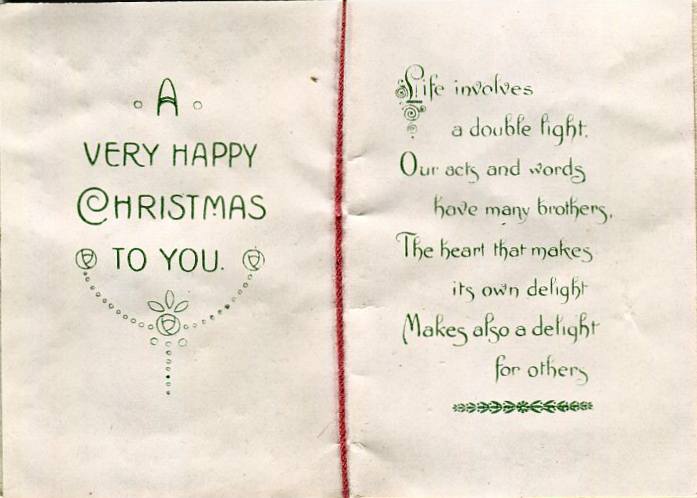 A
VERY HAPPY
CHRISTMAS
TO YOU.
Life involves
a double light.
Our acts and words
have many brothers,
The heart that makes
its own delight
Makes also a delight
for others